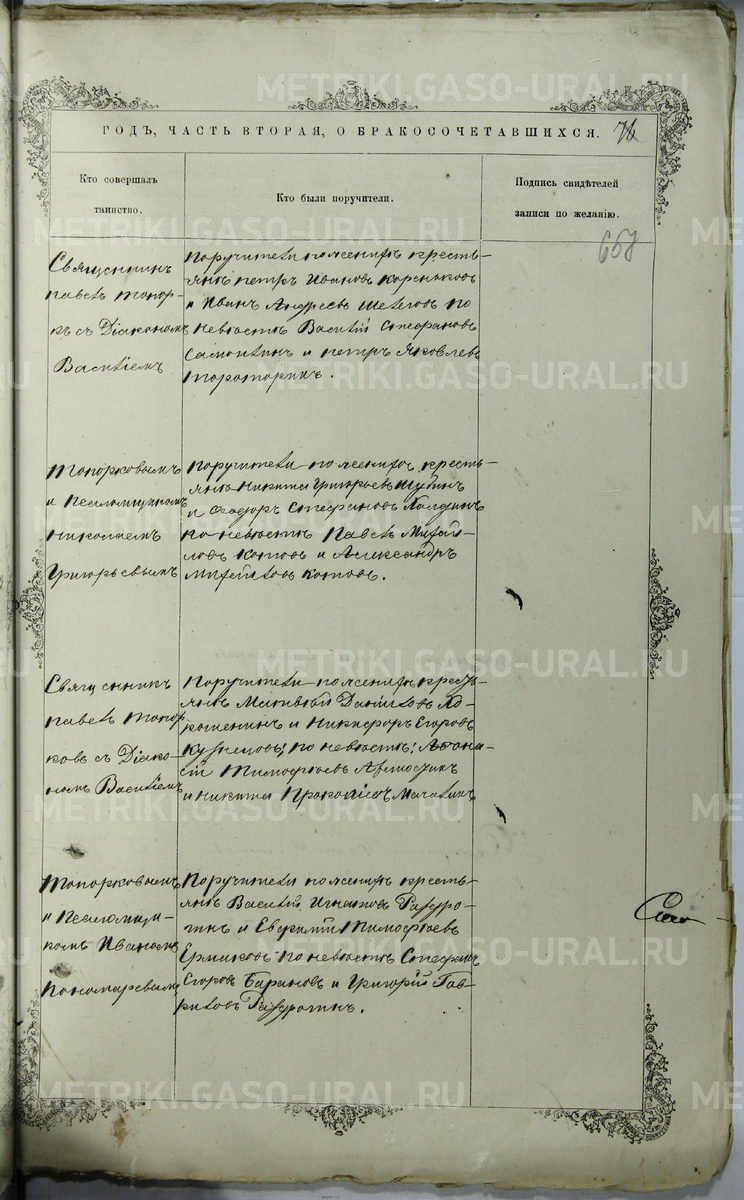 METRIKI.GASO-URAL.RU
ГОДЪ, ЧАСТЬ ВТОРАЯ, О БРАКОСОЧЕТАВШИХСЯ.
Кто совершалъ
таинство.
Кто были поручители.
Подпись свидѣтелей
записи по желанію.
658
Священникъ
Павелъ Топор-
къ съ Діакономъ
Василіемъ
Поручители по женихѣ кресть-
янѣ Петръ Ивановъ
и Иванъ Андреевъ по
невѣстѣ Василій Стефановъ
и Петръ Яковлевъ
Топорковымъ
и Псаломщикомъ
Николаемъ
Григорьевымъ
Поручители по женихѣ кресть-
яне Никита Григорьевъ Шубинъ
и Ѳедоръ Стефановъ
по невѣстѣ Павелъ Михай-
ловъ Котовъ и Александръ
Михайловъ Котовъ.
Священникъ
Павелъ Топор
ковъ съ Діако-
номъ Василіемъ
Поручители по женихѣ кресть-
янѣ Матвѣй Даниловъ Хо-
рошенинъ и Никифоръ Егоровъ
Кузнецовъ; по невѣстѣ: Аѳона-
сій Тимофѣевъ
и Никита Прокопьевъ
Топорковымъ
и Псаломщи-
комъ Иваномъ
Пономаревымъ
Поручители по женихѣ кресть-
янѣ Василій Игнатовъ
и Евфимій Тимофѣевъ
Ермаковъ по невѣстѣ Стефанъ
Егоровъ Барановъ и Григорій Гав-
риловъ